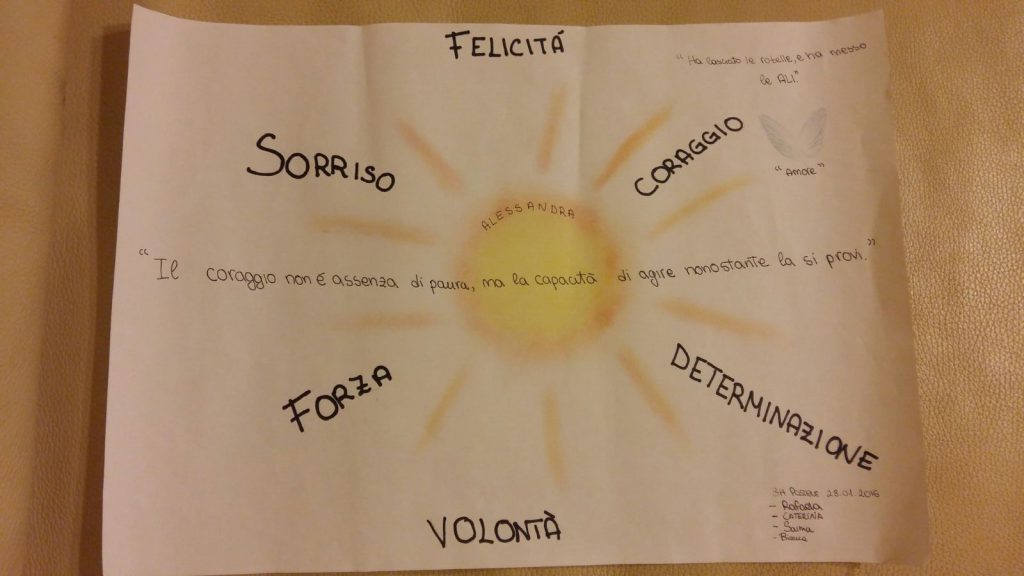 FELICITÁ
"Ha lasciato le rotelle, e ha messo
le ALI."
SORRISO
CORAGGIO
"Amore"
ALESSANDRA
"Il coraggio non é assenza di paura, ma la capacità di agire nonostante la si provi."
FORZA
DETERMINAZIONE
VOLONTÀ
28.01.2016
- Raffaella
- CATERINA
- Saima
- Bianca